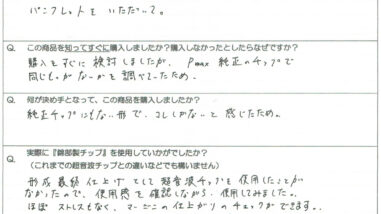 パンフレットをいただいて。
Q. この商品を知ってすぐに購入しましたか？購入しなかったとしたらなぜですか？
購入をすぐに検討しましたが、Pmax 純正のチップで
同じものがないかを調べていたため。
Q. 何が決め手となって、この商品を購入しましたか？
純正チップにもない形で、コレしかないと感じたため。
Q. 実際に『錦部製チップ』を使用していかがでしたか？
（これまでの超音波チップとの違いなどでも構いません）
形成最終仕上げとして超音波チップを使用したことが
なかったので、使用感を確認しながら、使用してみました。
ほぼストレスもなく、マージンの仕上がりのチェックができます。